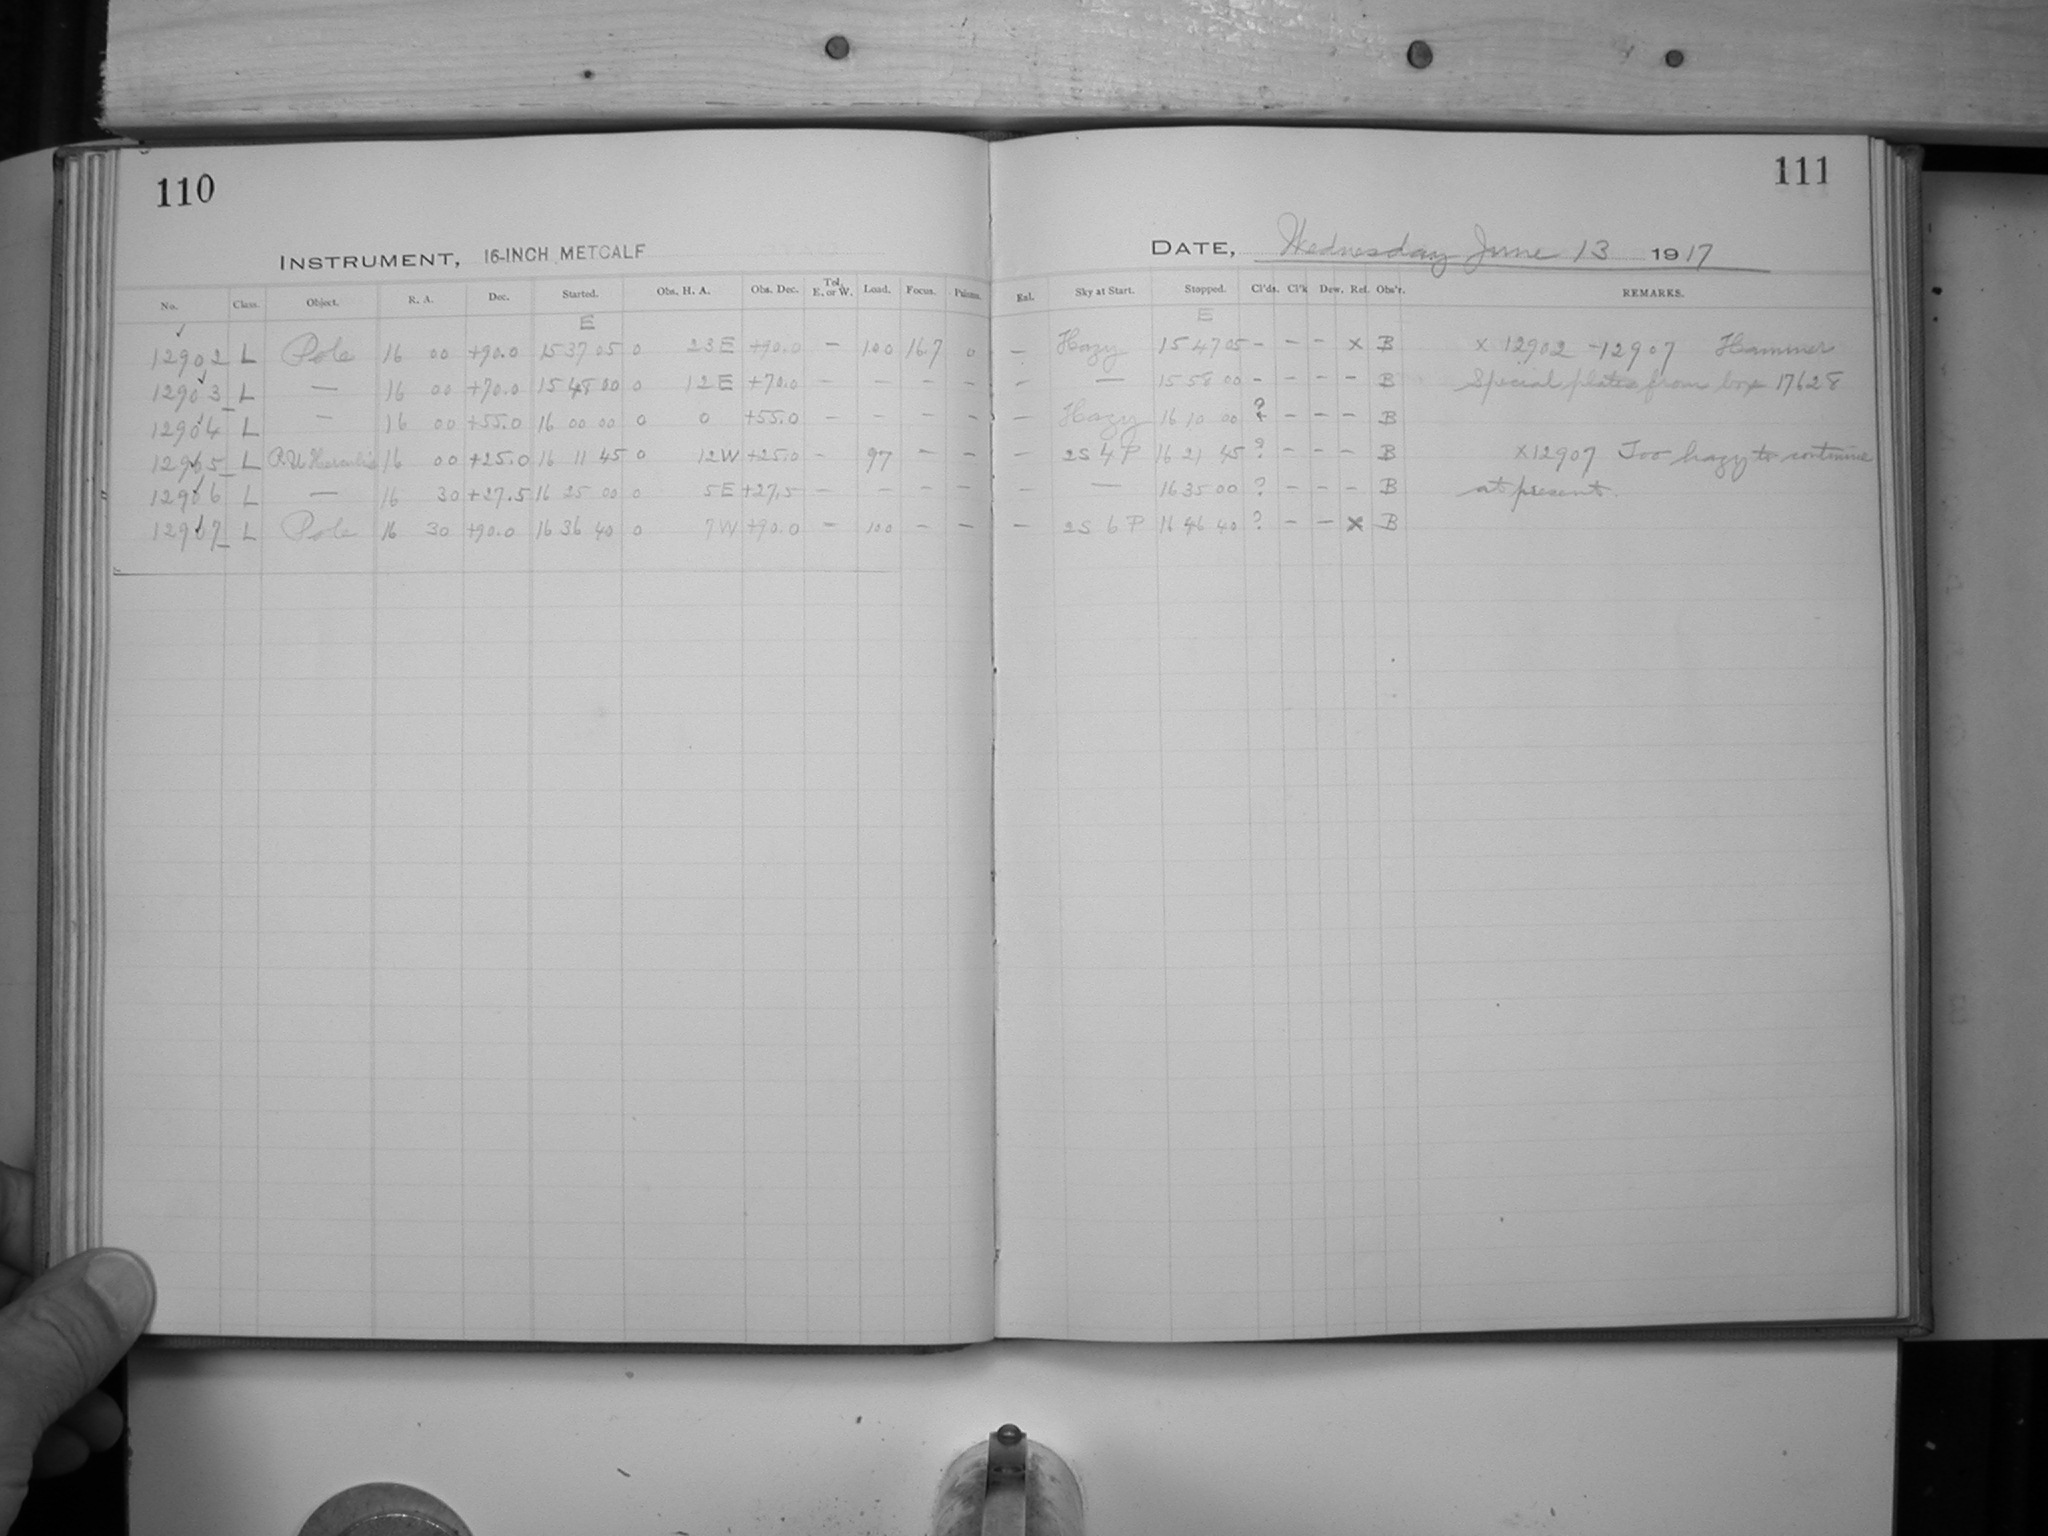 110
111
INSTRUMENT, 16-INCH METCALF
DATE, Wednesday June 13 1917
No. Class. Object. R. A. Dec. Started. Obs. H. A. Obs. Dec. Tel. E. or W. Load. Focus. Prisms. Enl. Sky at Start. Stopped. Cl'ds. Cl'k Dew. Ref. Obs'r. REMARKS.
E E
12902 L Pole 16 00 +90.0 15 37 05 0 23 E +90.0 — 100 16.7 0 — Hazy 15 47 05 - - - x B x 12902 - 12907 Hammer
12903 L — 16 00 +70.0 15 48 00 0 12 E +70.0 — — — — — — 15 58 00 - - - - B Special plates from box 17628
12904 L — 16 00 +55.0 16 00 00 0 0 +55.0 — — — — — Hazy 16 10 00 ? - - - B
12905 L R.U Herculis 16 00 +25.0 16 11 45 0 12 W +25.0 — 97 — — — 2S 4 P 16 21 45 ? - - - B x12907 Too hazy to continue
12906 L — 16 30 +27.5 16 25 00 0 5 E +27.5 — — — — — — 16 35 00 ? - - - B at present.
12907 L Pole 16 30 +90.0 16 36 40 0 7 W +90.0 — 100 — — — 2S 6 P 16 46 40 ? - - x B